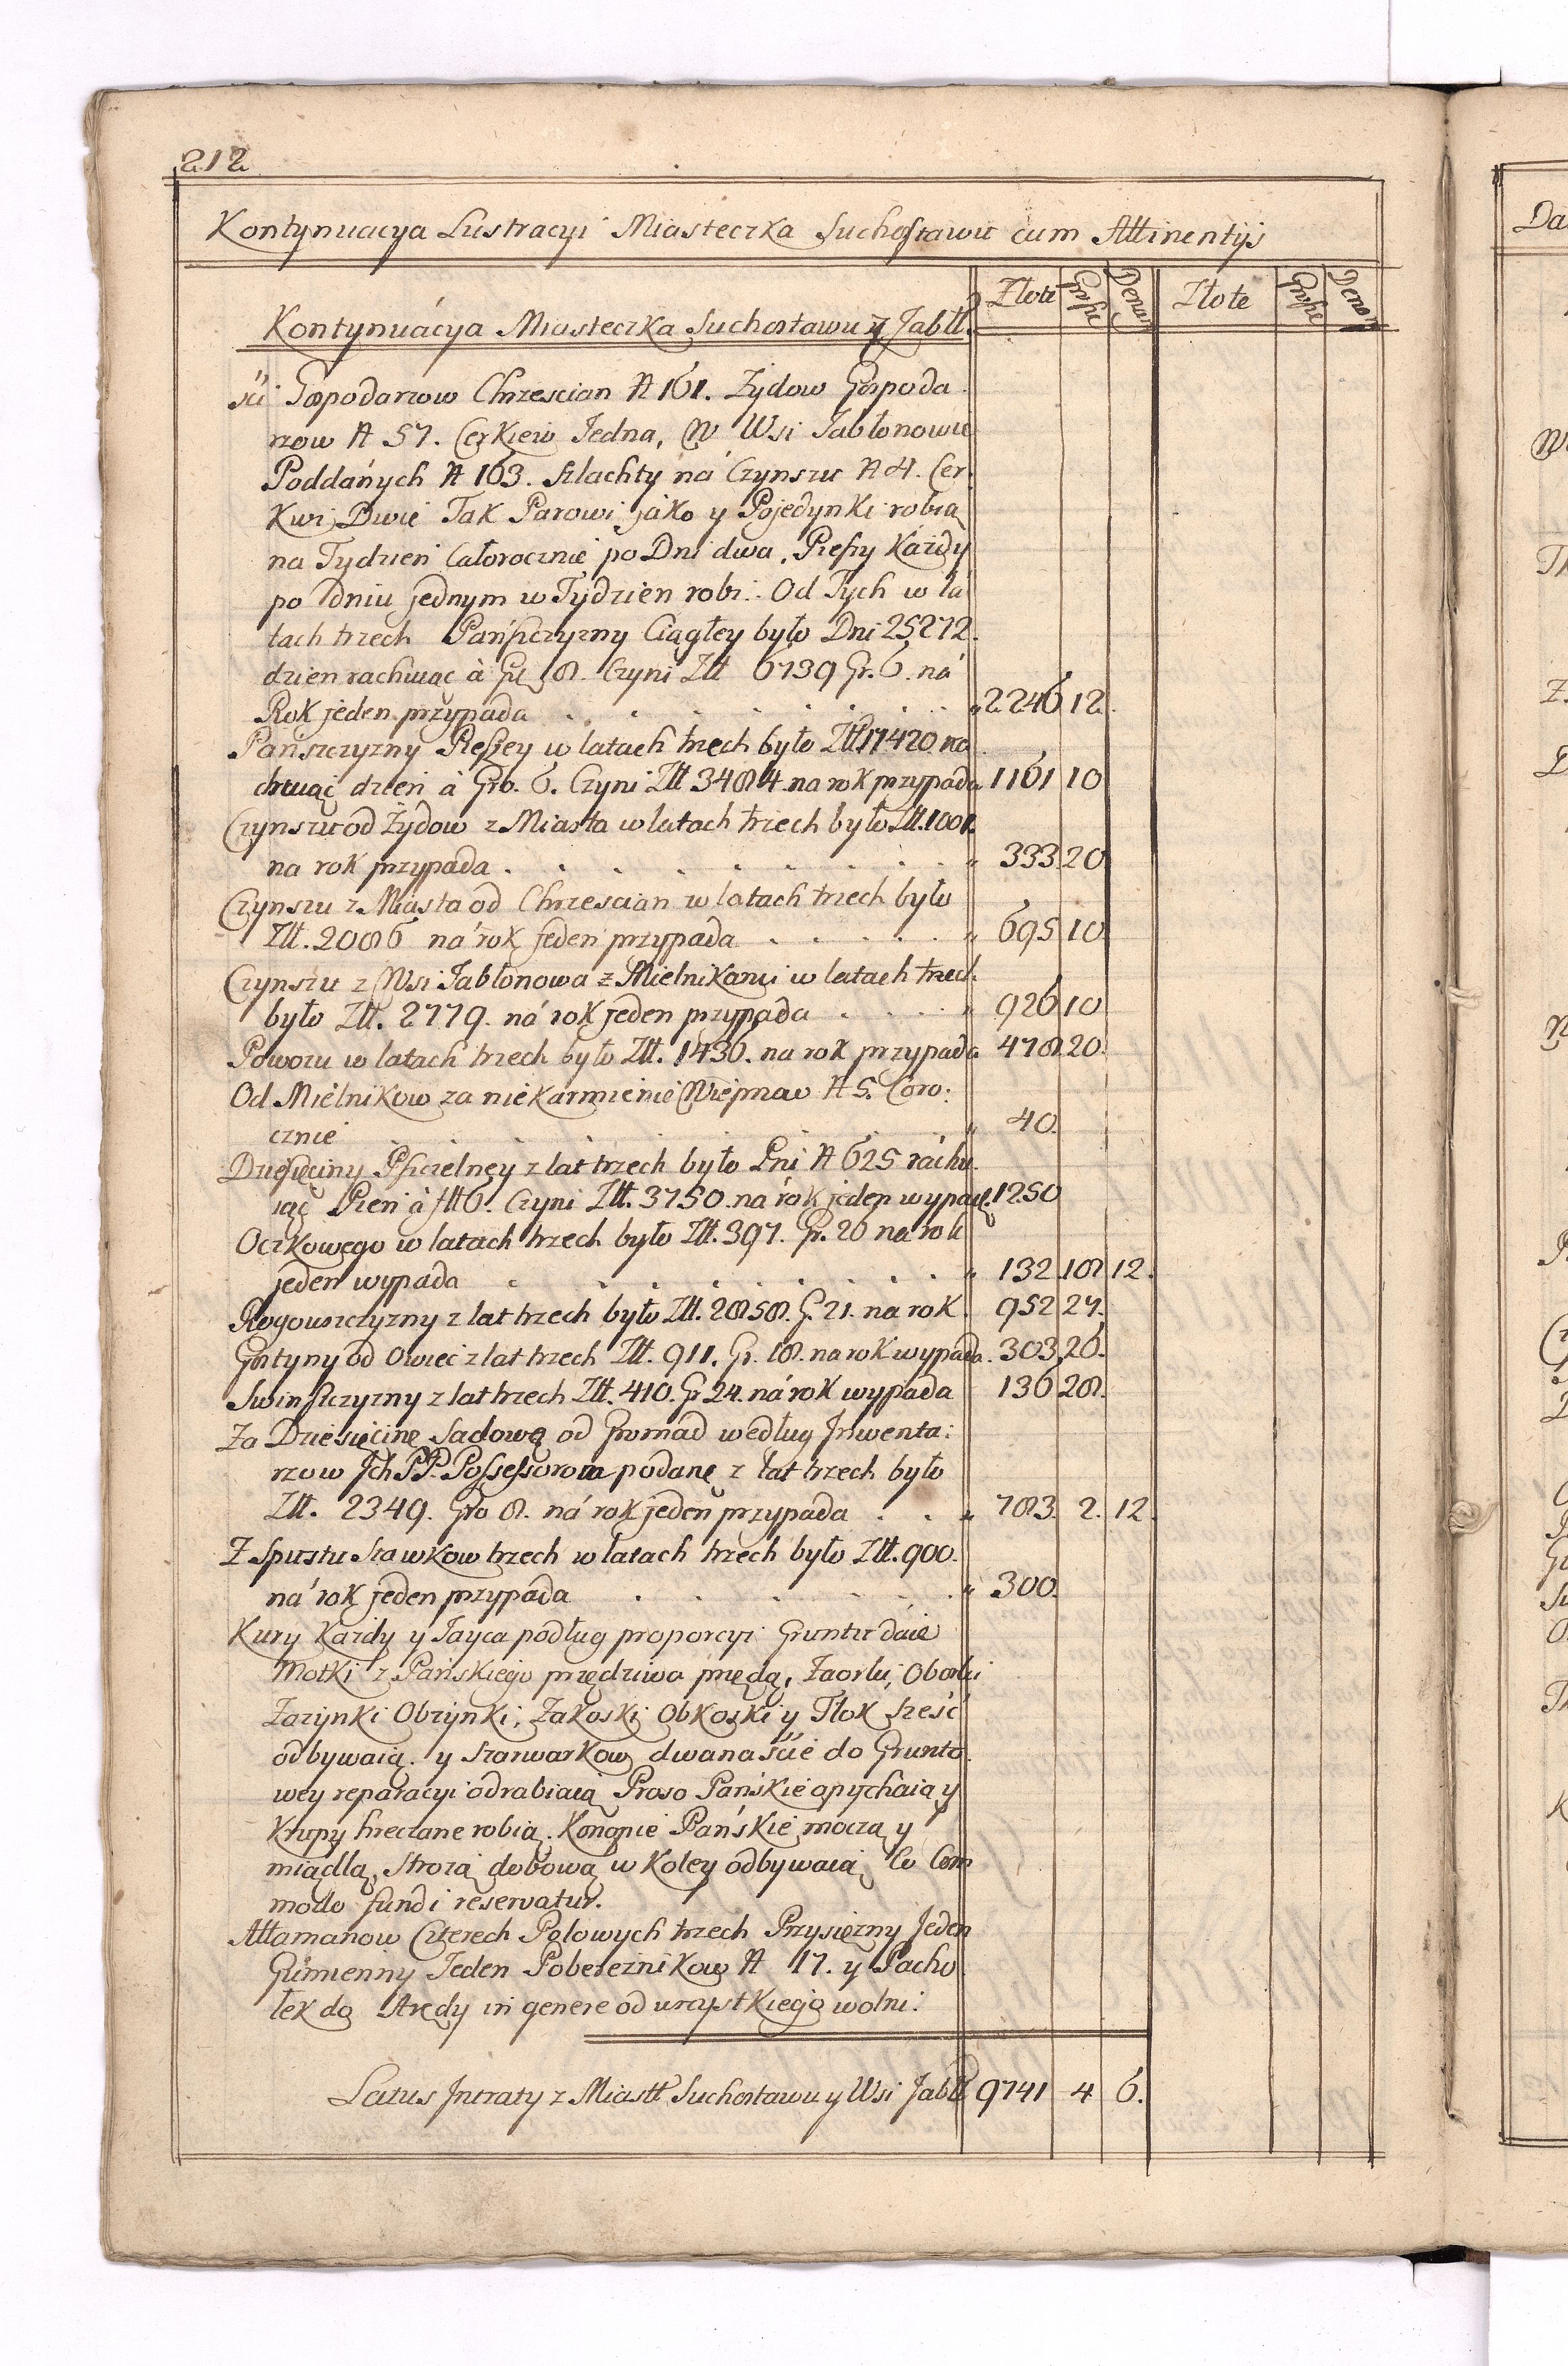 212
Kontynuacya Lustracyi Miasteczka Suchostawu cum Attinentijs
Złote Grosze Denar Złote Grosze Denar
Kontynuácya Miasteczka Suchostawu y Jabłł.
ści Gospodarzow Chrzescian N 161. Zydow Gospoda
rzow N 57. Cerkiew Jedna, W Wsi Jabłonowie
Poddánych N 163. Szlachty ná Czynszu N 4. Cer
kwi Dwie Tak Parowi jáko y Pojedynki robią
na Tydzien Całorocznie po Dni dwa, Pieszy Kázdy
po dniu jednym w Tydzien robi. Od Tych w la
tach trzech Pańszczyzny Ciągłey było Dni 25272.
dzien rachuiąc à Gr. 8. Czyni Złł 6739 Gr. 6. ná
Rok jeden przypada 2246 12.
Panszczyzny Pieszey w latach trzech było Złł 17420 ra
chuiąc dzień à Gro. 6. Czyni Złł 3484 na rok przypada 1161 10
Czynszu od Żydow z Miasta w latach trzech było Złł. 1001.
na rok przypada 333 20
Czynszu z Miasta od Chrzescian w latach trzech było
Złł. 2086 ná rok jeden przypada 695 10
Czynszu z Wsi Jabłonowa z Mielnikami w latach trzech
było Złł. 2779. ná rok jeden przypada 926 10
Powozu w latach trzech było Złł. 1436. na rok przypada 478 20.
Od Mielnikow za niekarmienie Wieprzow N 5. Coro:
cznie 40.
Dziesięciny Pszczelney z lat trzech było Pni N 625 ráchu
iąc Pień à fłł 6. Czyni Złł. 3750. ná rok jeden wypadę. 1250
Oczkowego w latach trzech było Złł. 397. Gr. 20 na rok
jeden wypada 132 18 12.
Rogowszczyzny z lat trzech było Złł. 2858. G. 21. na rok 952 27.
Gostyny od Owiec z lat trzech Złł. 911. Gr. 18. na rok wypada. 303 26.
Swinszczyzny z lat trzech Złł. 410. Gr 24. ná rok wypada 136 28.
Za Dziesięcinę Sadową od Gromad według Jnwenta:
rzow Jch PP. Possessorom podanę z lat trzech było
Złł. 2349. Gro 8. ná rok jeden przypada 783. 2. 12.
Z Spustu Stawkow trzech w latach trzech było Złł. 900.
ná rok jeden przypáda 300.
Kury Kazdy y Jayca podług proporcyi Gruntu daie
Motki z Pańskiego przędziwa przędą, Zaorki, Oborki
Zazynki Obzynki, Zakoski Obkoski y Tłok sześć
odbywaią. y szarwarkow dwanaście do Grunto
wey reparacyi odrabiaią Proso Pańskie opychaią y
Krupy hreczane robią. Konopie Pańskie moczą y
miądlą, Strożą dobową w koley odbywaią Co Com
modo fundi reservatur.
Attamanow Czterech Polowych trzech Przysięzny Jeden
Gumienny Jeden Pobereznikow N 17. y Pacho
łek do Arędy in genere od wszystkiego wolni.
Latus Jntraty z Miastł Suchostawu y Wsi Jabłł. 9741 4 6.